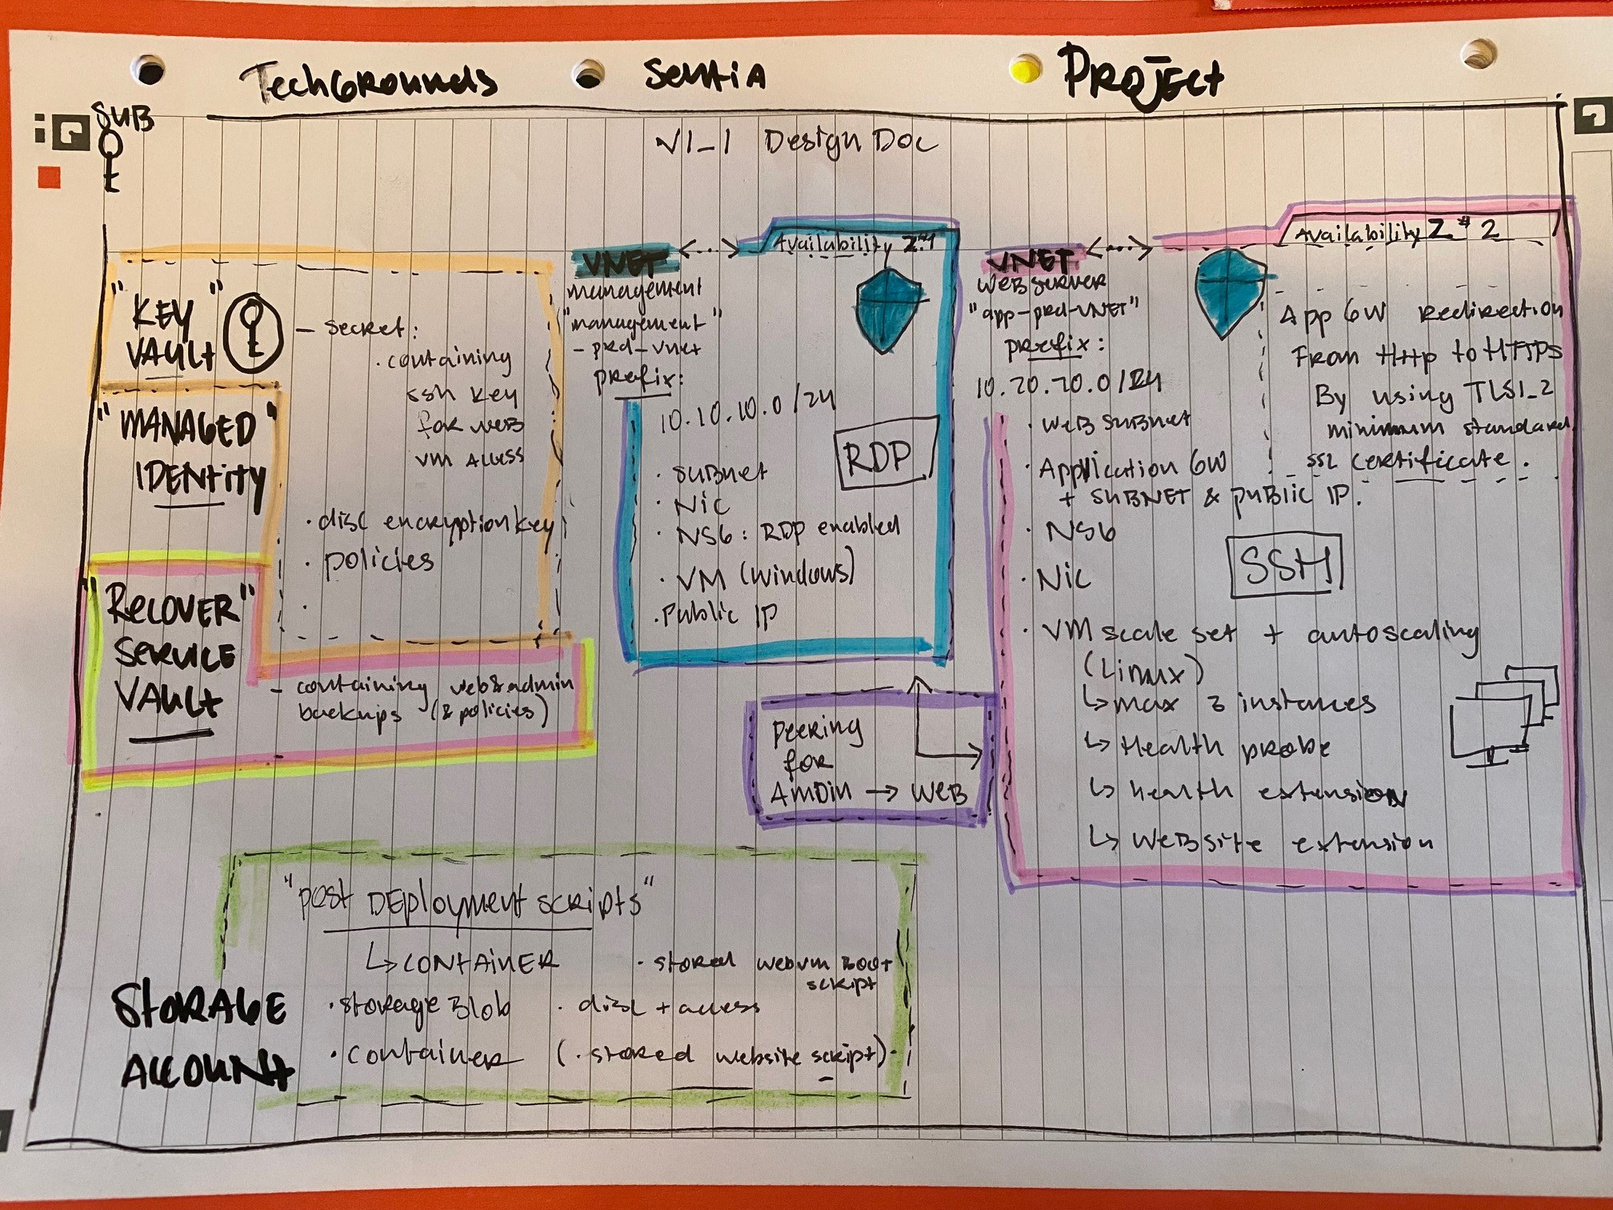 TechGrounds Sentia PROJECT
SUB
V1_1 Design Doc
"KEY VAULT"
- secret:
· containing
ssh key
for web
vm access
· disc encryption key
· policies
"MANAGED"
IDENTITY
"RECOVER"
SERVICE
VAULT
- containing web&admin
backups (& policies)
VNET
Availability Z#1
management
"management"
- prd-vnet
prefix:
10.10.10.0/24
RDP
· subnet
· Nic
· NSG: RDP enabled
· VM (windows)
· Public IP
Peering
for
AmDin → WEB
VNET
Availability Z#2
WEBSERVER
"app-prd-VNET"
prefix:
10.20.20.0/24
· WEB SUBNET
· Application GW
+ SUBNET & public IP.
· NSG
· Nic
SSH
· VM scale set + autoscaling
(Linux)
↳ max 3 instances
↳ Health probe
↳ health extension
↳ WEBsite extension
App GW Redirection
From Http to HTTPS
By using TLS1_2
minimum standard
SSL certificate.
"post DEployment scripts"
↳ CONTAINER
· stored webvm Boot
script
· storage Blob
· disc + access
· container
(· stored website script)
STORAGE
ACCOUNT